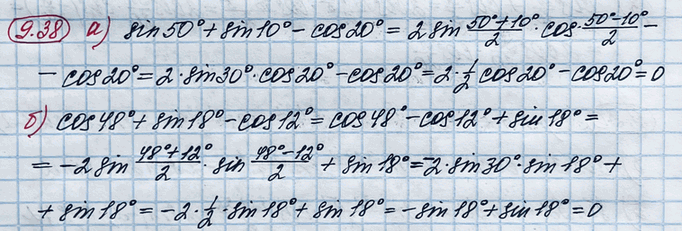 9.38 а) sin 50° + sin 10° − cos 20° = 2 sin (50°+10°)/2 · cos (50°−10°)/2 −
− cos 20° = 2 · sin 30° · cos 20° − cos 20° = 2 · 1/2 cos 20° − cos 20° = 0
б) cos 48° + sin 18° − cos 12° = cos 48° − cos 12° + sin 18° =
= −2 sin (48°+12°)/2 · sin (48°−12°)/2 + sin 18° = −2 · sin 30° · sin 18° +
+ sin 18° = −2 · 1/2 · sin 18° + sin 18° = − sin 18° + sin 18° = 0